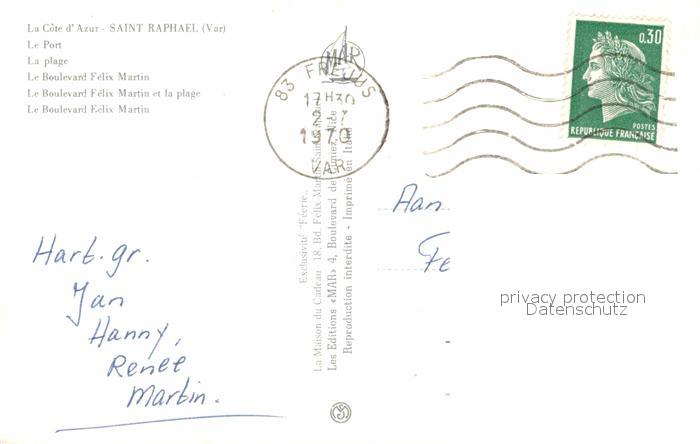 La Côte d'Azur - SAINT RAPHAEL (Var)
Le Port
La plage
Le Boulevard Félix Martin
Le Boulevard Félix Martin et la plage
Le Boulevard Félix Martin
MAR
83 FREJUS
17H30
2-7
1970
VAR
0,30
POSTES
REPUBLIQUE FRANÇAISE
Exclusivité "Féerie"
La Maison du Cadeau 18, Bd. Félix Martin
Les Editions «MAR» 4, Boulevard de
Reproduction interdite - Imprimé en Italie
Hart. gr.
Jan
Hanny,
Renee
Martin.
Aan
Fe
privacy protection
Datenschutz